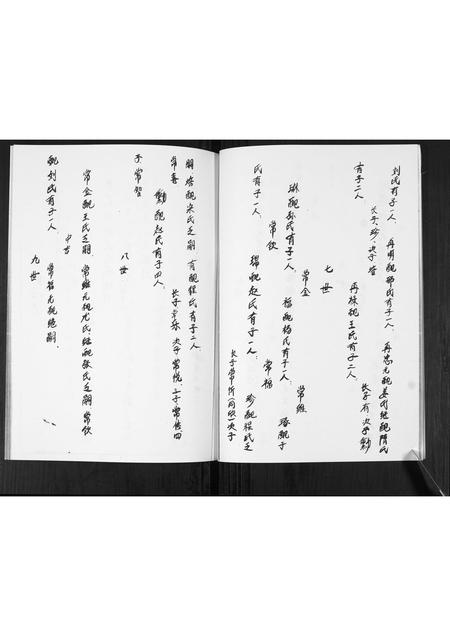 刘氏有子一人 再明配邵氏有子一人 再忠元配姜氏继配隋氏
有子二人
长子珍 次子
再栋配王氏有子二人
长子有 次子
七世
琳配孙氏有子一人
常金
福配杨氏有子一人
常维
琢配于
氏有子一人
常钦
瑞配赵氏有子一人
常福
珍配程氏乏
长子常忻 次子
嗣 培配宋氏乏嗣 有配程氏有子二人
常喜
配赵氏有子四人
长子常 次子常悦 三子常佐 四
子常智
八世
常金配王氏乏嗣 常维元配尤氏继配张氏乏嗣 常钦
配刘氏有子一人
常福元配 嗣
九世